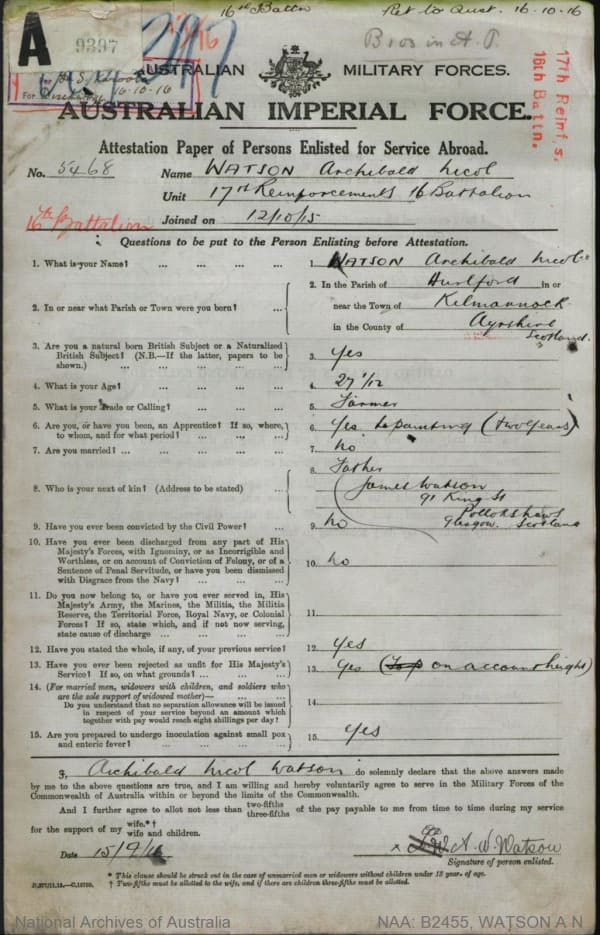 16th Battn Ret to Aust. 16-10-16
A
9397
Bros in A.F.
16-10-16
AUSTRALIAN MILITARY FORCES.
17th Reinf,s.
16th Battn.
AUSTRALIAN IMPERIAL FORCE.
Attestation Paper of Persons Enlisted for Service Abroad.
No. 5468 Name WATSON Archibald Nicol
Unit 17th Reinforcements 16 Battalion
16th Battalion
Joined on 12/10/15
Questions to be put to the Person Enlisting before Attestation.
1. What is your Name? ... ... ... ... 1. WATSON Archibald Nicol
2. In or near what Parish or Town were you born? ... 2. In the Parish of Hurlford in or
near the Town of Kilmannock
in the County of Ayrshire
Scotland.
3. Are you a natural born British Subject or a Naturalized
British Subject? (N.B.—If the latter, papers to be
shown.) ... ... ... ... ... 3. Yes
4. What is your Age? ... ... ... ... 4. 27 1/12
5. What is your Trade or Calling? ... ... ... 5. Farmer
6. Are you, or have you been, an Apprentice? If so, where,
to whom, and for what period? ... ... ... 6. Yes to painting (two years)
7. Are you married? ... ... ... ... ... 7. No
8. Who is your next of kin? (Address to be stated) ... 8. Father
James Watson
91 King St
Pollokshaws
Glasgow. Scotland
9. Have you ever been convicted by the Civil Power? ... 9. No
10. Have you ever been discharged from any part of His
Majesty's Forces, with Ignominy, or as Incorrigible and
Worthless, or on account of Conviction of Felony, or of a
Sentence of Penal Servitude, or have you been dismissed
with Disgrace from the Navy? ... ... ... 10. No
11. Do you now belong to, or have you ever served in, His
Majesty's Army, the Marines, the Militia, the Militia
Reserve, the Territorial Force, Royal Navy, or Colonial
Forces? If so, state which, and if not now serving,
state cause of discharge ... ... ... ... 11.
12. Have you stated the whole, if any, of your previous service? 12. Yes
13. Have you ever been rejected as unfit for His Majesty's
Service? If so, on what grounds? ... ... ... 13. Yes ( on account height)
14. (For married men, widowers with children, and soldiers who
are the sole support of widowed mother)—
Do you understand that no separation allowance will be issued
in respect of your service beyond an amount which
together with pay would reach eight shillings per day? 14.
15. Are you prepared to undergo inoculation against small pox
and enteric fever? ... ... ... ... 15. Yes
I, Archibald Nicol Watson do solemnly declare that the above answers made
by me to the above questions are true, and I am willing and hereby voluntarily agree to serve in the Military Forces of the
Commonwealth of Australia within or beyond the limits of the Commonwealth.
And I further agree to allot not less than two-fifths three-fifths of the pay payable to me from time to time during my service
for the support of my wife.*† wife and children.
Date 15/9/15 x A. W. Watson
Signature of person enlisted.
* This clause should be struck out in the case of unmarried men or widowers without children under 18 year. of age.
† Two-fifths must be allotted to the wife, and if there are children three-fifths must be allotted.
National Archives of Australia NAA: B2455, WATSON A N